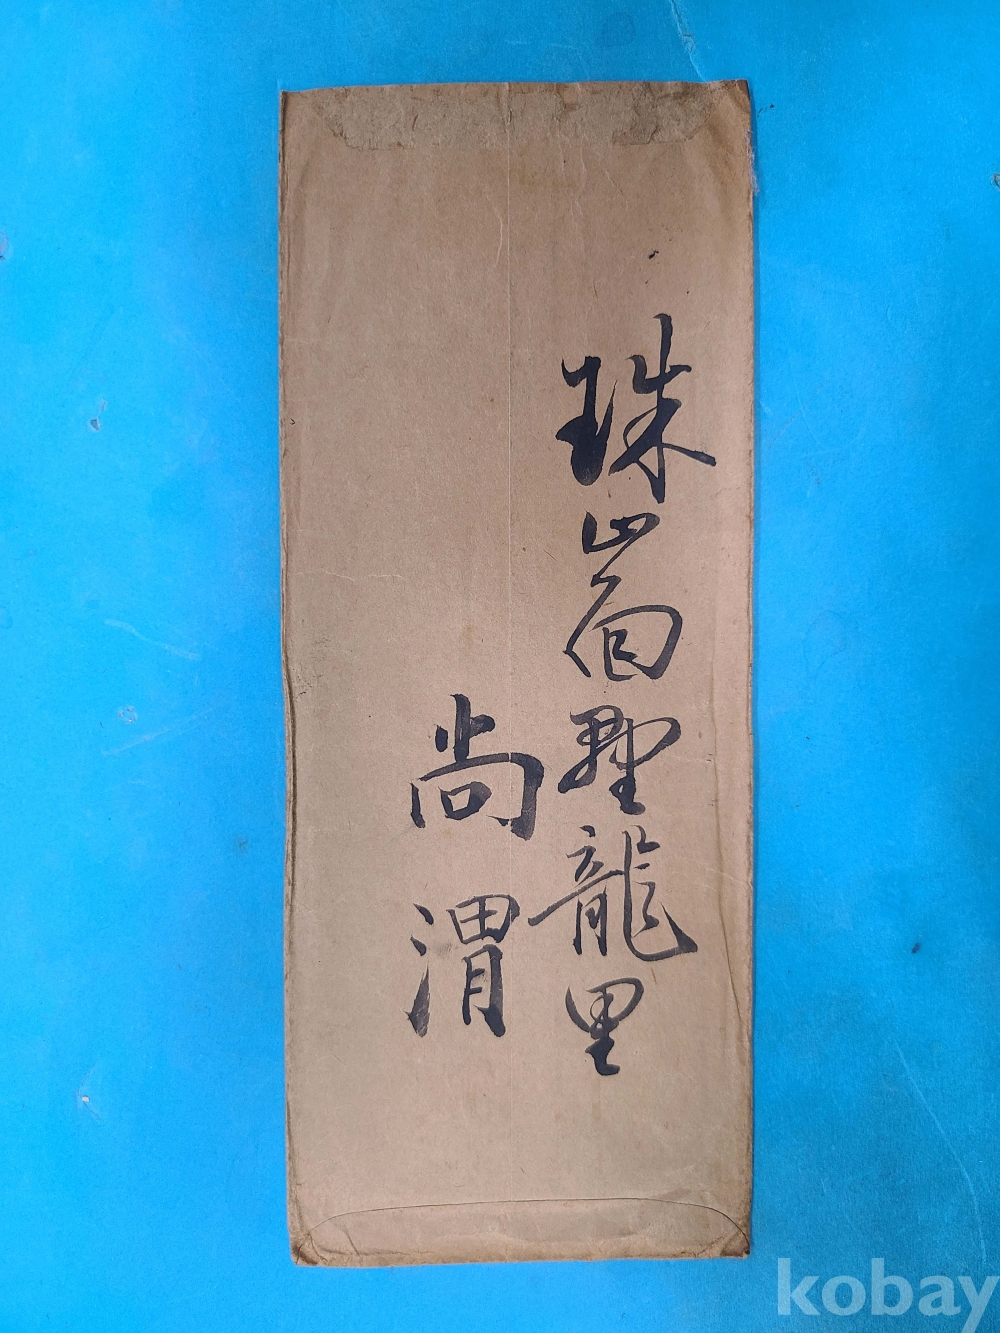 珠山面野龍里
尚渭
kobay